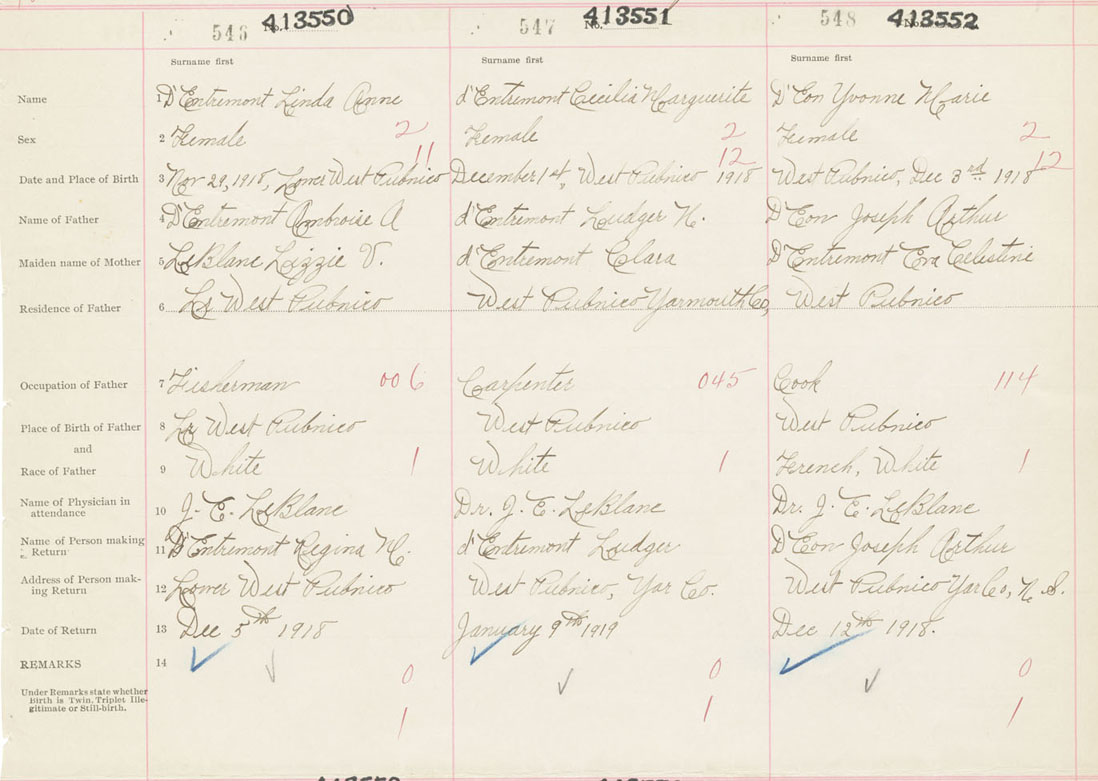 546 No. 413550 547 No. 413551 548 No. 413552
Surname first Surname first Surname first
Name 1 D'Entremont Linda Anne d'Entremont Cecilia Marguerite D'Eon Yvonne Marie
Sex 2 Female 2 Female 2 Female 2
11 12 12
Date and Place of Birth 3 Nov 29, 1918, Lower West Pubnico December 1st, West Pubnico 1918 West Pubnico, Dec 3rd 1918
Name of Father 4 D'Entremont Ambroise A d'Entremont Ludger N. D'Eon Joseph Arthur
Maiden name of Mother 5 LeBlanc Lizzie V. d'Entremont Clara D'Entremont Eva Celestine
Residence of Father 6 Lr West Pubnico West Pubnico Yarmouth Co, West Pubnico
Occupation of Father 7 Fisherman 006 Carpenter 045 Cook 114
Place of Birth of Father 8 Lr West Pubnico West Pubnico West Pubnico
and
Race of Father 9 White 1 White 1 French, White 1
Name of Physician in
attendance 10 J. E. LeBlanc Dr. J. E. LeBlanc Dr. J. E. LeBlanc
Name of Person making
Return 11 D'Entremont Regina M. d'Entremont Ludger D'Eon Joseph Arthur
Address of Person mak-
ing Return 12 Lower West Pubnico West Pubnico, Yar Co. West Pubnico Yar Co, N. S.
Date of Return 13 Dec 5th 1918 January 9th 1919 Dec 12th 1918.
REMARKS 14 0 0 0
Under Remarks state whether
Birth is Twin, Triplet Ille-
gitimate or Still-birth. 1 1 1